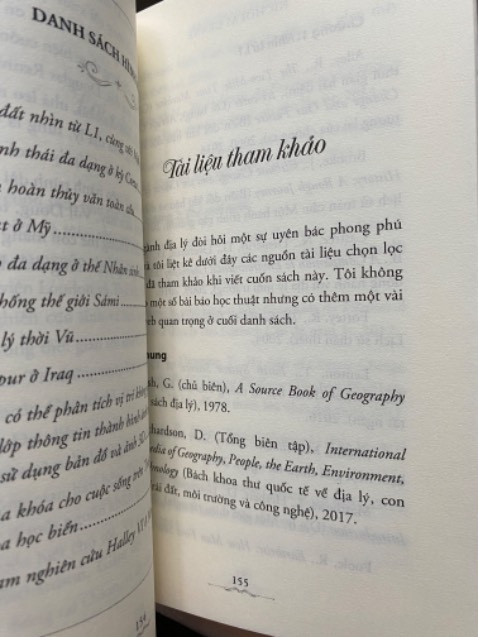 DANH SÁCH HÌN
đất nhìn từ L1, cùng
nh thái đa dạng ở kỷ
hoàn thủy văn toàn
ở Mỹ
đa dạng ở thế Nhân sinh
hống thế giới Sámi
lý thời Vũ
our ở Iraq
có thể phân tích vị trí không
lớp thông tin thành hình
sử dụng bản đồ và ảnh 3D
a khóa cho cuộc sống trên
a học biển
am nghiên cứu Halley VI
154
Tài liệu tham khảo
ành địa lý đòi hỏi một sự uyên bác phong phú
tôi liệt kê dưới đây các nguồn tài liệu chọn lọc
đã tham khảo khi viết cuốn sách này. Tôi không
một số bài báo học thuật nhưng có thêm một vài
quan trọng ở cuối danh sách.
hung
sh, G. (chủ biên), A Source Book of Geography
sách địa lý), 1978.
hardson, D. (Tổng biên tập), International
dia of Geography, People, the Earth, Environment,
nology (Bách khoa thư quốc tế về địa lý, con
rái đất, môi trường và công nghệ), 2017.
155